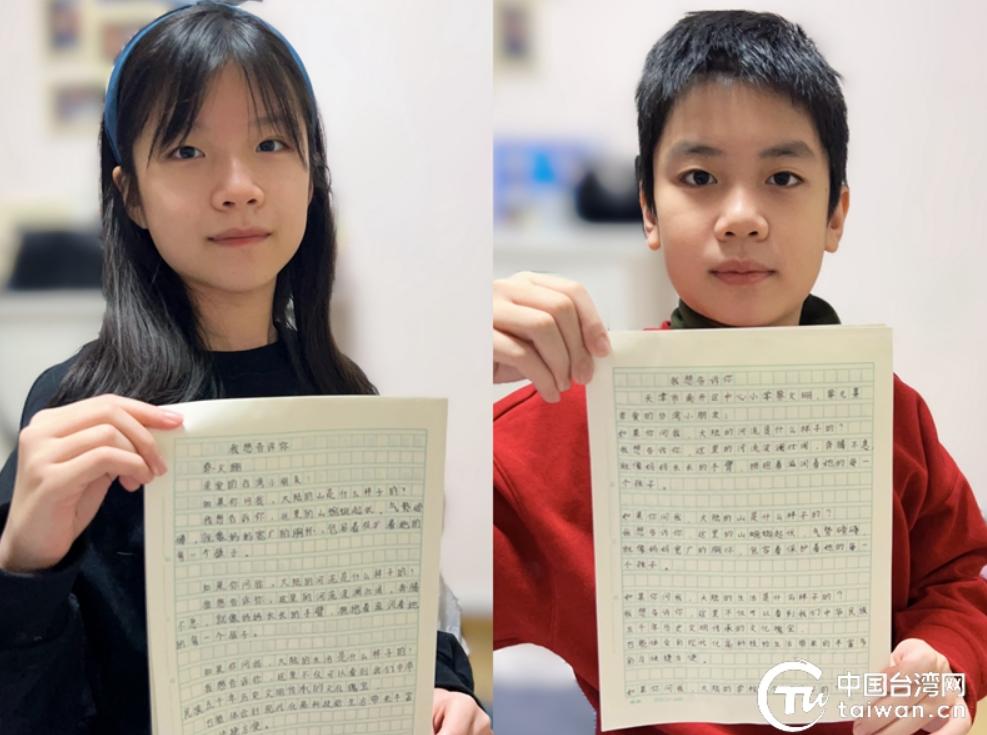 我想告诉你
蔡文珊
亲爱的台湾小朋友：
如果你问我，大陆的山是什么样子的？
我想告诉你，这里的山蜿蜒起伏，气势磅
礴，就像妈妈宽广的胸怀，包容着保护着她的
每一个孩子。
如果你问我，大陆的河流是什么样子的？
我想告诉你，这里的河流波澜壮阔，奔腾
不息，就像妈妈长长的手臂，拥抱着滋润着她
的每一个孩子。
如果你问我，大陆的生活是什么样子的？
我想告诉你，这里不仅可以看到我们中华
民族五千年历史文明传承的文化瑰宝
也能体会到现代化高科技给生活带来丰富
便捷方便。
我想告诉你
天津市南开区中心小学蔡文珊，蔡
亲爱的台湾小朋友：
如果你问我，大陆的河流是什么样子的？
我想告诉你，这里的河流波澜壮阔，奔腾不息，
就像妈妈长长的手臂，拥抱着滋润着她的每一
个孩子。
如果你问我，大陆的山是什么样子的？
我想告诉你，这里的山蜿蜒起伏，气势磅礴，
就像妈妈宽广的胸怀，包容着保护着她的每一
个孩子。
如果你问我，大陆的生活是什么样子的？
我想告诉你，这里不仅可以看到我们中华民族
五千年历史文明传承的文化瑰宝
也能体会到现代化高科技给生活带来的丰富多
彩与快捷方便。
如果你问我，大陆的学校
中国台湾网
taiwan.cn